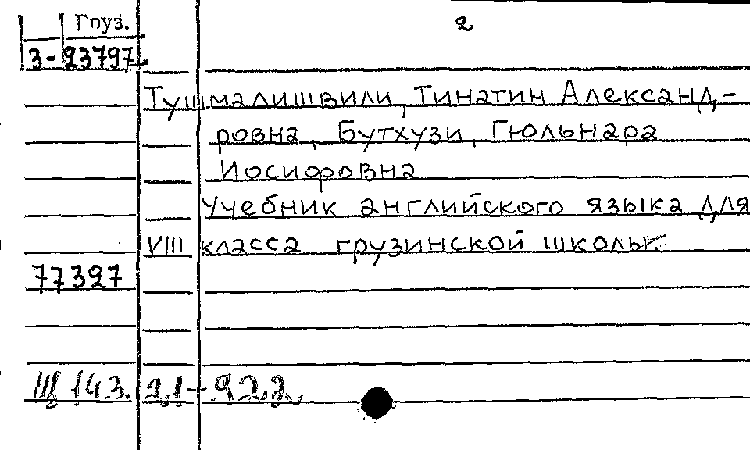 Груз.
2
3-23797
Тушмалишвили, Тинатин Александ-
ровна, Бутхузи, Гюльнара
Иосифовна
Учебник английского языка для
VIII класса грузинской школы.
77397
Ш 143.21-922